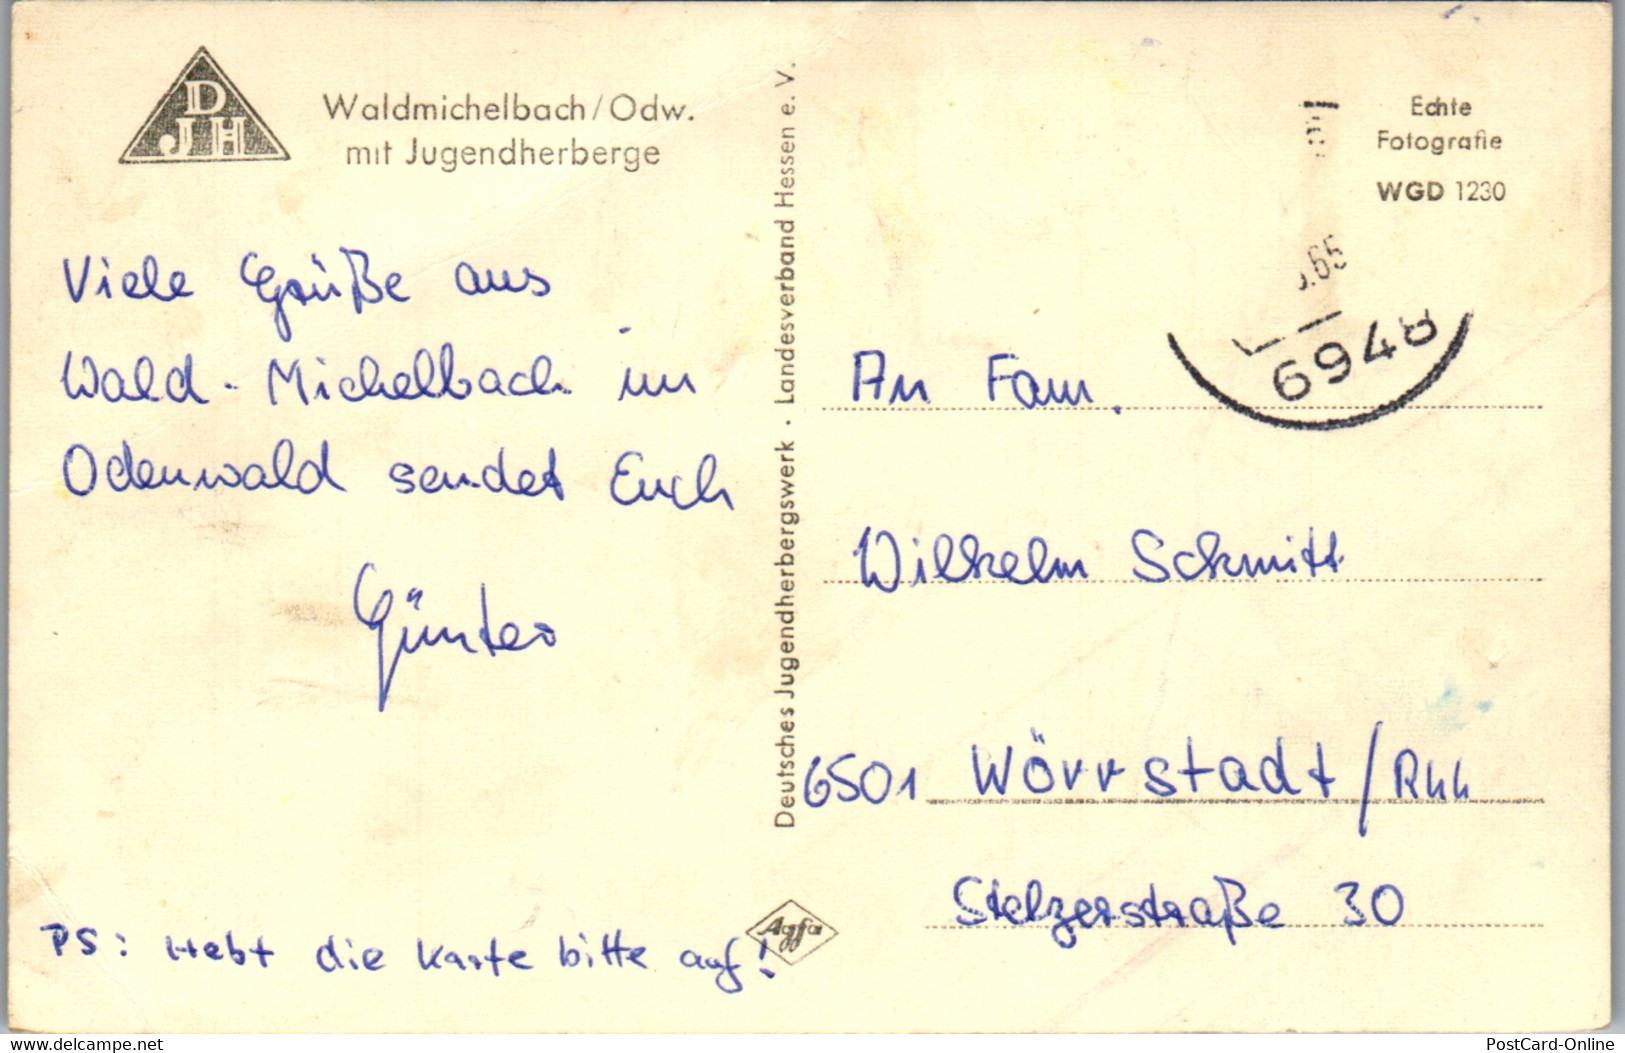 D
JH
Waldmichelbach/Odw.
mit Jugendherberge
Viele Grüße aus
Wald-Michelbach im
Odenwald sendet Euch
Günter
PS: Hebt die Karte bitte auf!
Deutsches Jugendherbergswerk · Landesverband Hessen e. V.
Agfa
Echte
Fotografie
WGD 1230
.65
6948
An Fam.
Wilhelm Schmitt
6501 Wörrstadt/Rhh
Stelzerstraße 30
www.delcampe.net
PostCard-Online